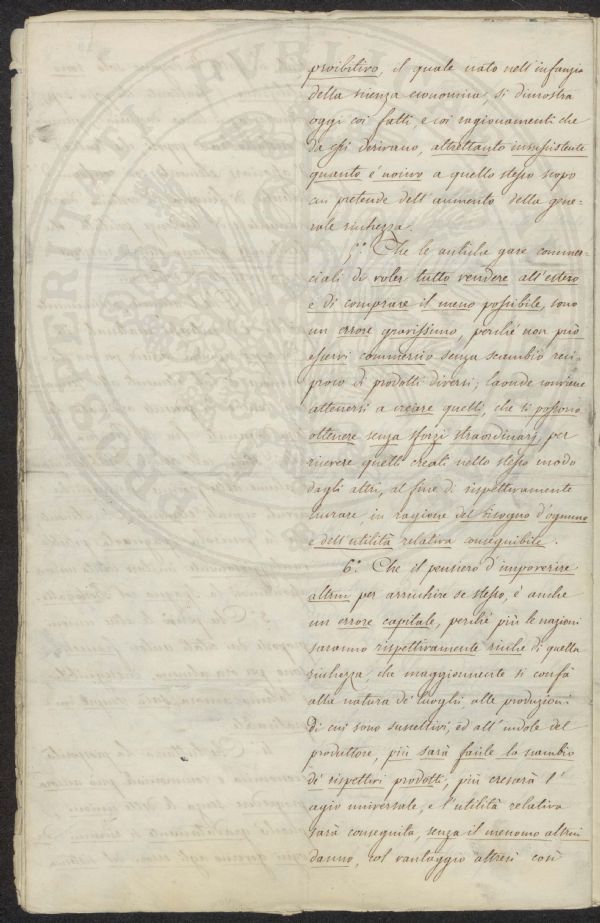 proibitivo, il quale nato nell'infanzia
della scienza economica, si dimostra
oggi coi fatti, e coi ragionamenti che
da essi derivano, altrettanto insussistente
quanto è nocivo a quello stesso scopo
cui pretende dell'aumento della gene-
rale ricchezza.
5.° Che le antiche gare commer-
ciali di voler tutto vendere all'estero
e di comprare il meno possibile, sono
un errore gravissimo, perché non può
esservi commercio senza scambio reci-
proco di prodotti diversi; laonde conviene
attenersi a creare quelli, che si possono
ottenere senza sforzi straordinarj, per
ricevere quelli creati nello stesso modo
dagli altri, al fine di rispettivamente
lucrare, in ragione del bisogno d'ognuno
e dell'utilità relativa conseguibile.
6.° Che il pensiero d'impoverire
altrui per arricchire se stesso, è anche
un errore capitale, perché più le nazioni
saranno rispettivamente ricche di quella
ricchezza, che maggiormente si confà
alla natura de' luoghi, alle produzioni
di cui sono suscettivi, ed all'indole del
produttore, più sarà facile lo scambio
de' rispettivi prodotti, più crescerà l'
agio universale, e l'utilità relativa
sarà conseguita, senza il menomo altrui
danno, col vantaggio altresì così